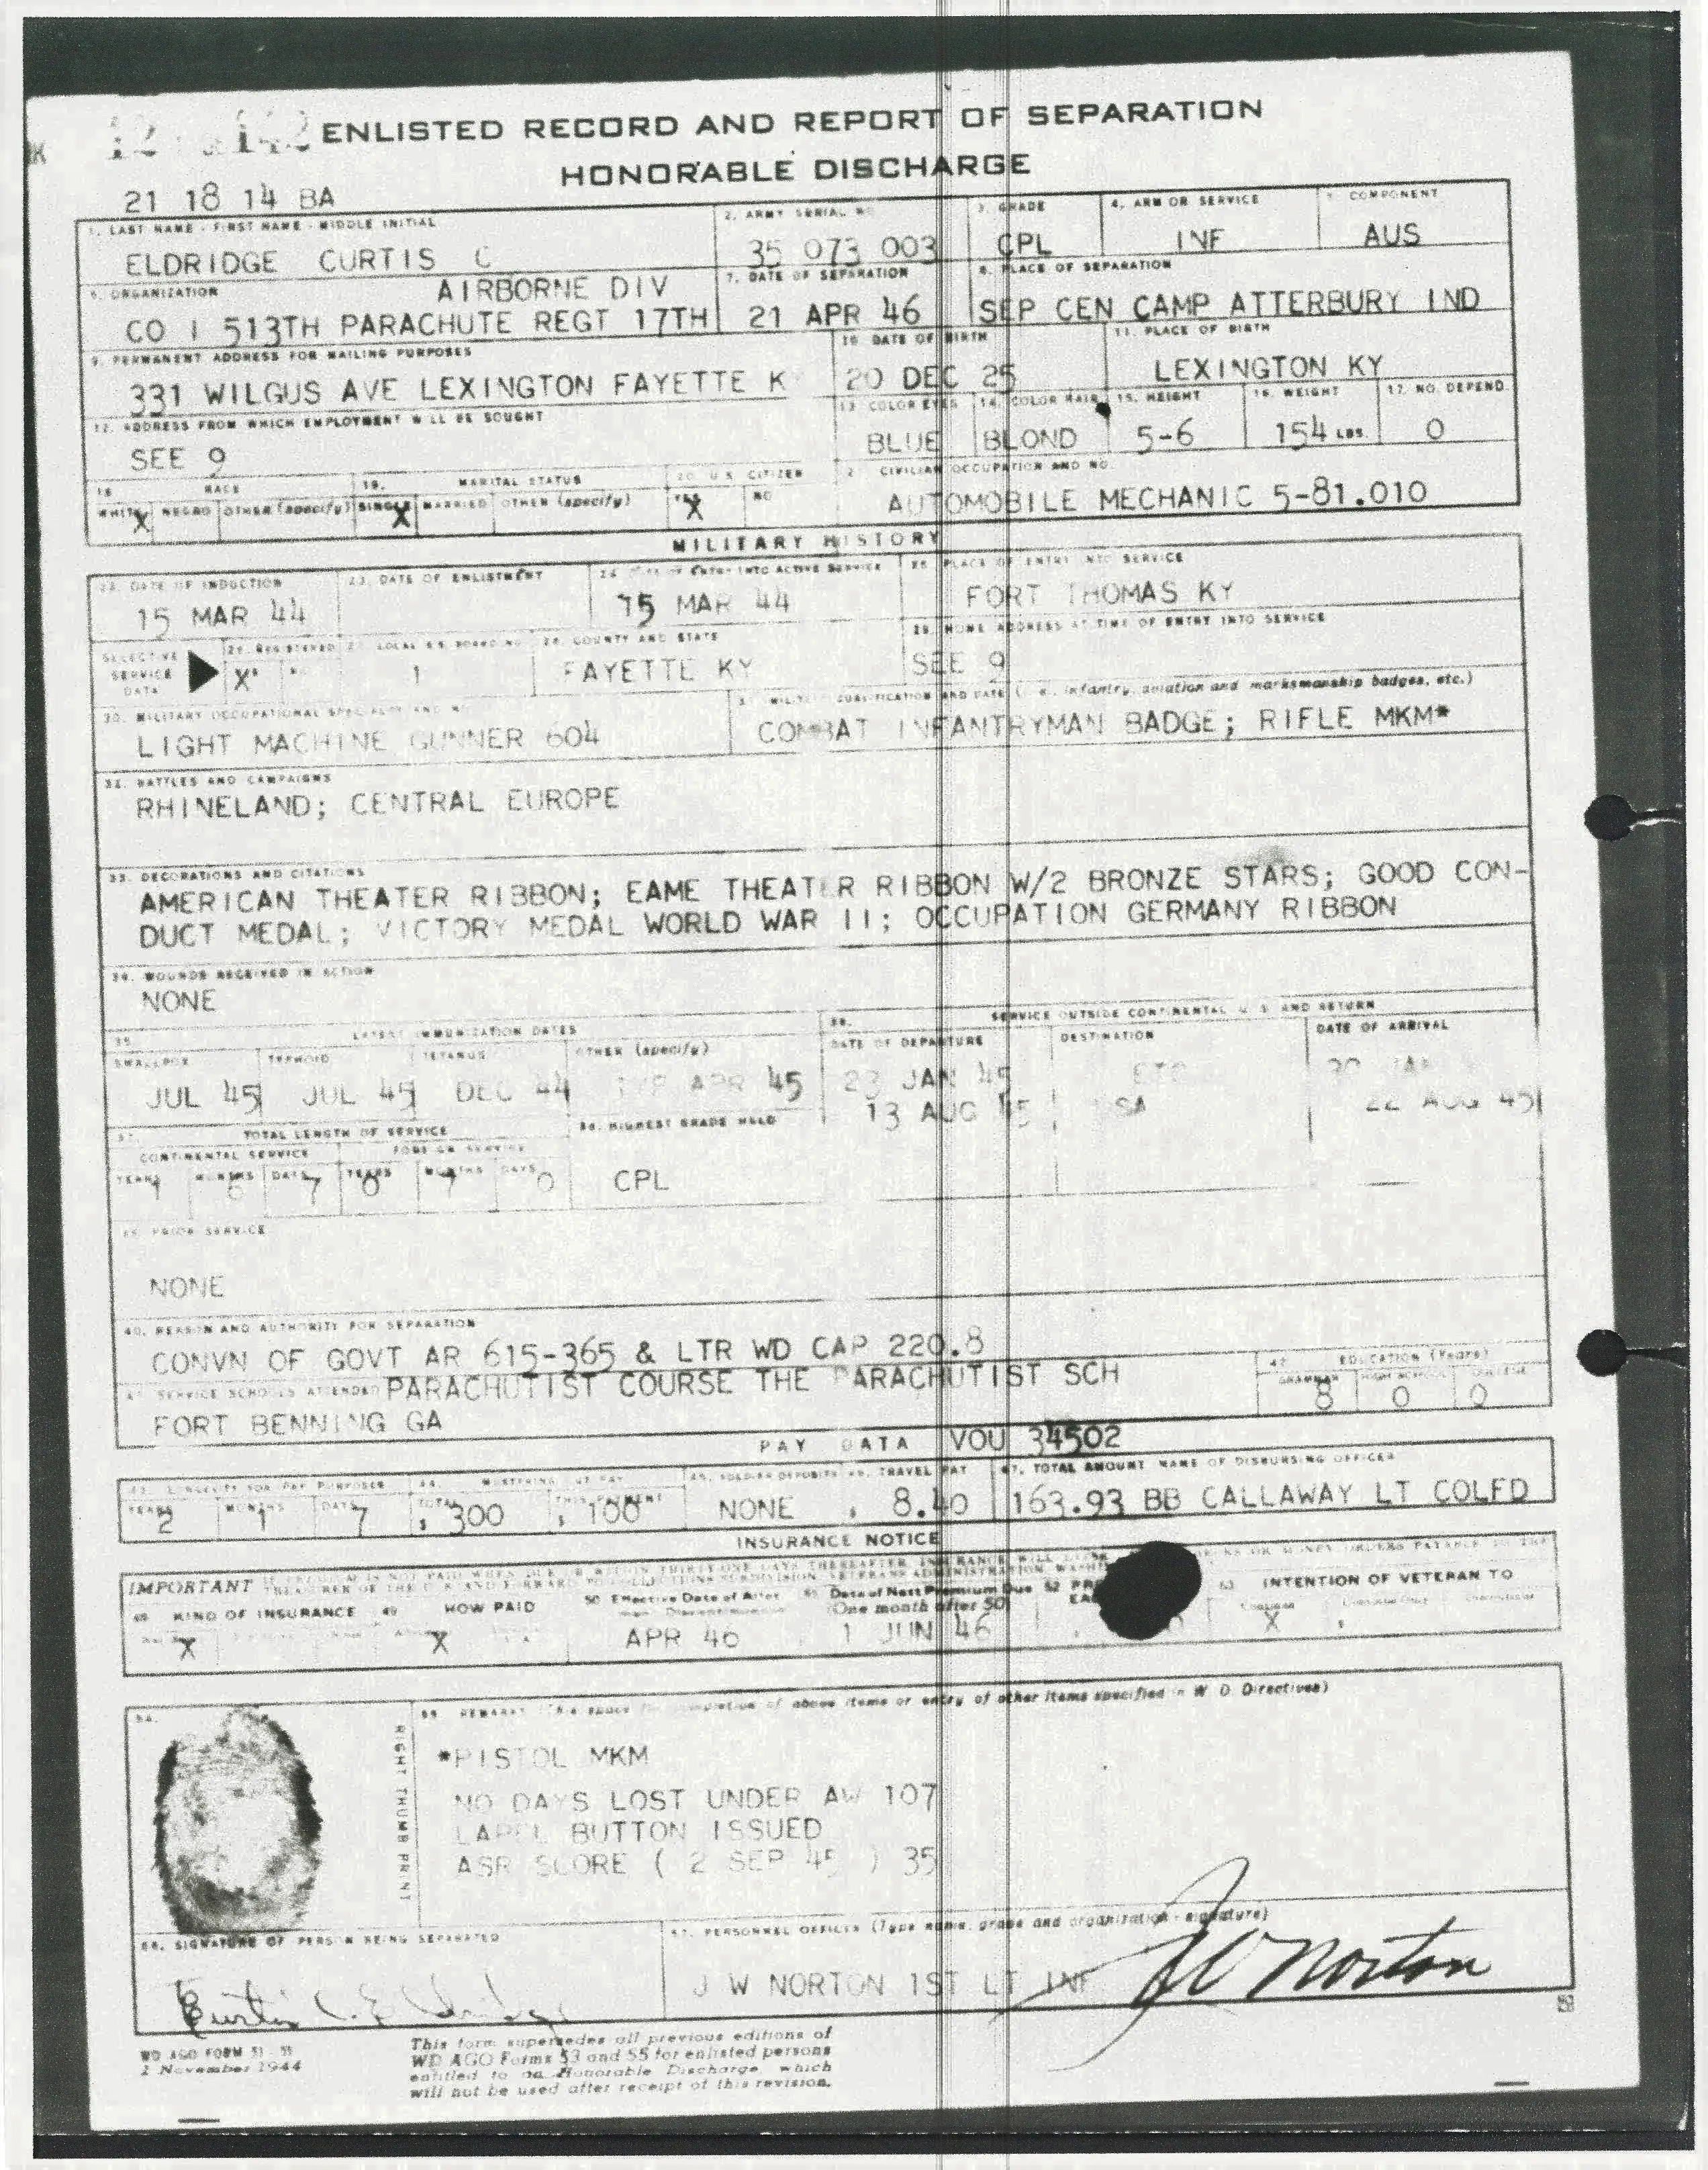 ENLISTED RECORD AND REPORT OF SEPARATION
HONORABLE DISCHARGE
21 18 14 BA
1. LAST NAME - FIRST NAME - MIDDLE INITIAL
2. ARMY SERIAL NO.
3. GRADE
4. ARM OR SERVICE
5. COMPONENT
ELDRIDGE CURTIS C
35 073 003
CPL
INF
AUS
6. ORGANIZATION
AIRBORNE DIV
CO I 513TH PARACHUTE REGT 17TH
7. DATE OF SEPARATION
21 APR 46
8. PLACE OF SEPARATION
SEP CEN CAMP ATTERBURY IND
9. PERMANENT ADDRESS FOR MAILING PURPOSES
331 WILGUS AVE LEXINGTON FAYETTE K
10. DATE OF BIRTH
20 DEC 25
11. PLACE OF BIRTH
LEXINGTON KY
12. ADDRESS FROM WHICH EMPLOYMENT WILL BE SOUGHT
SEE 9
13. COLOR EYES
BLUE
14. COLOR HAIR
BLOND
15. HEIGHT
5-6
16. WEIGHT
154 LBS.
17. NO. DEPEND.
0
18. RACE
WHITE X NEGRO OTHER (specify)
19. MARITAL STATUS
SINGLE X MARRIED OTHER (specify)
20. U.S. CITIZEN
YES X NO
CIVILIAN OCCUPATION AND NO.
AUTOMOBILE MECHANIC 5-81.010
MILITARY HISTORY
22. DATE OF INDUCTION
15 MAR 44
23. DATE OF ENLISTMENT
24. DATE OF ENTRY INTO ACTIVE SERVICE
15 MAR 44
25. PLACE OF ENTRY INTO SERVICE
FORT THOMAS KY
SELECTIVE SERVICE DATA
26. REGISTERED
X
27. LOCAL S.S. BOARD NO.
1
28. COUNTY AND STATE
FAYETTE KY
29. HOME ADDRESS AT TIME OF ENTRY INTO SERVICE
SEE 9
30. MILITARY OCCUPATIONAL SPECIALTY AND NO.
LIGHT MACHINE GUNNER 604
31. MILITARY QUALIFICATION AND DATE (i.e., infantry, aviation and marksmanship badges, etc.)
COMBAT INFANTRYMAN BADGE; RIFLE MKM*
32. BATTLES AND CAMPAIGNS
RHINELAND; CENTRAL EUROPE
33. DECORATIONS AND CITATIONS
AMERICAN THEATER RIBBON; EAME THEATER RIBBON W/2 BRONZE STARS; GOOD CON-
DUCT MEDAL; VICTORY MEDAL WORLD WAR II; OCCUPATION GERMANY RIBBON
34. WOUNDS RECEIVED IN ACTION
NONE
35. LATEST IMMUNIZATION DATES
SMALLPOX
JUL 45
TYPHOID
JUL 45
TETANUS
DEC 44
OTHER (specify)
TYP APR 45
36. SERVICE OUTSIDE CONTINENTAL U.S. AND RETURN
DATE OF DEPARTURE
DESTINATION
DATE OF ARRIVAL
23 JAN 45 ETO 30 JAN
13 AUG 45 SA 22 AUG 45
37. TOTAL LENGTH OF SERVICE
CONTINENTAL SERVICE
FOREIGN SERVICE
YEARS MONTHS DAYS YEARS MONTHS DAYS
1 6 7 0 7 0
38. HIGHEST GRADE HELD
CPL
39. PRIOR SERVICE
NONE
40. REASON AND AUTHORITY FOR SEPARATION
CONVN OF GOVT AR 615-365 & LTR WD CAP 220.8
41. SERVICE SCHOOLS ATTENDED
PARACHUTIST COURSE THE PARACHUTIST SCH
FORT BENNING GA
42. EDUCATION (Years)
GRAMMAR HIGH SCHOOL COLLEGE
8 0 0
PAY DATA VOU 34502
43. LONGEVITY FOR PAY PURPOSES
YEARS MONTHS DAYS
2 1 7
44. MUSTERING OUT PAY
TOTAL THIS PAYMENT
$ 300 $ 100
45. SOLDIER DEPOSITS
NONE
46. TRAVEL PAY
$ 8.40
47. TOTAL AMOUNT NAME OF DISBURSING OFFICER
163.93 BB CALLAWAY LT COLFD
INSURANCE NOTICE
IMPORTANT
48. KIND OF INSURANCE
X
49. HOW PAID
X
50 Effective Date of Allotment Discontinuance
APR 46
51 Date of Next Premium Due (One month after 50)
1 JUN 46
INTENTION OF VETERAN TO
X
54.
RIGHT THUMB PRINT
55. REMARKS (This space for completion of above items or entry of other items specified in W. D. Directives)
*PISTOL MKM
NO DAYS LOST UNDER AW 107
LAPEL BUTTON ISSUED
ASR SCORE ( 2 SEP 45 ) 35
56. SIGNATURE OF PERSON BEING SEPARATED
Curtis C. Eldridge
57. PERSONNEL OFFICER (Type name, grade and organization - signature)
J W NORTON 1ST LT INF
J W Norton
WD AGO FORM 53 - 55
1 November 1944
This form supersedes all previous editions of
WD AGO Forms 53 and 55 for enlisted persons
entitled to an Honorable Discharge, which
will not be used after receipt of this revision.